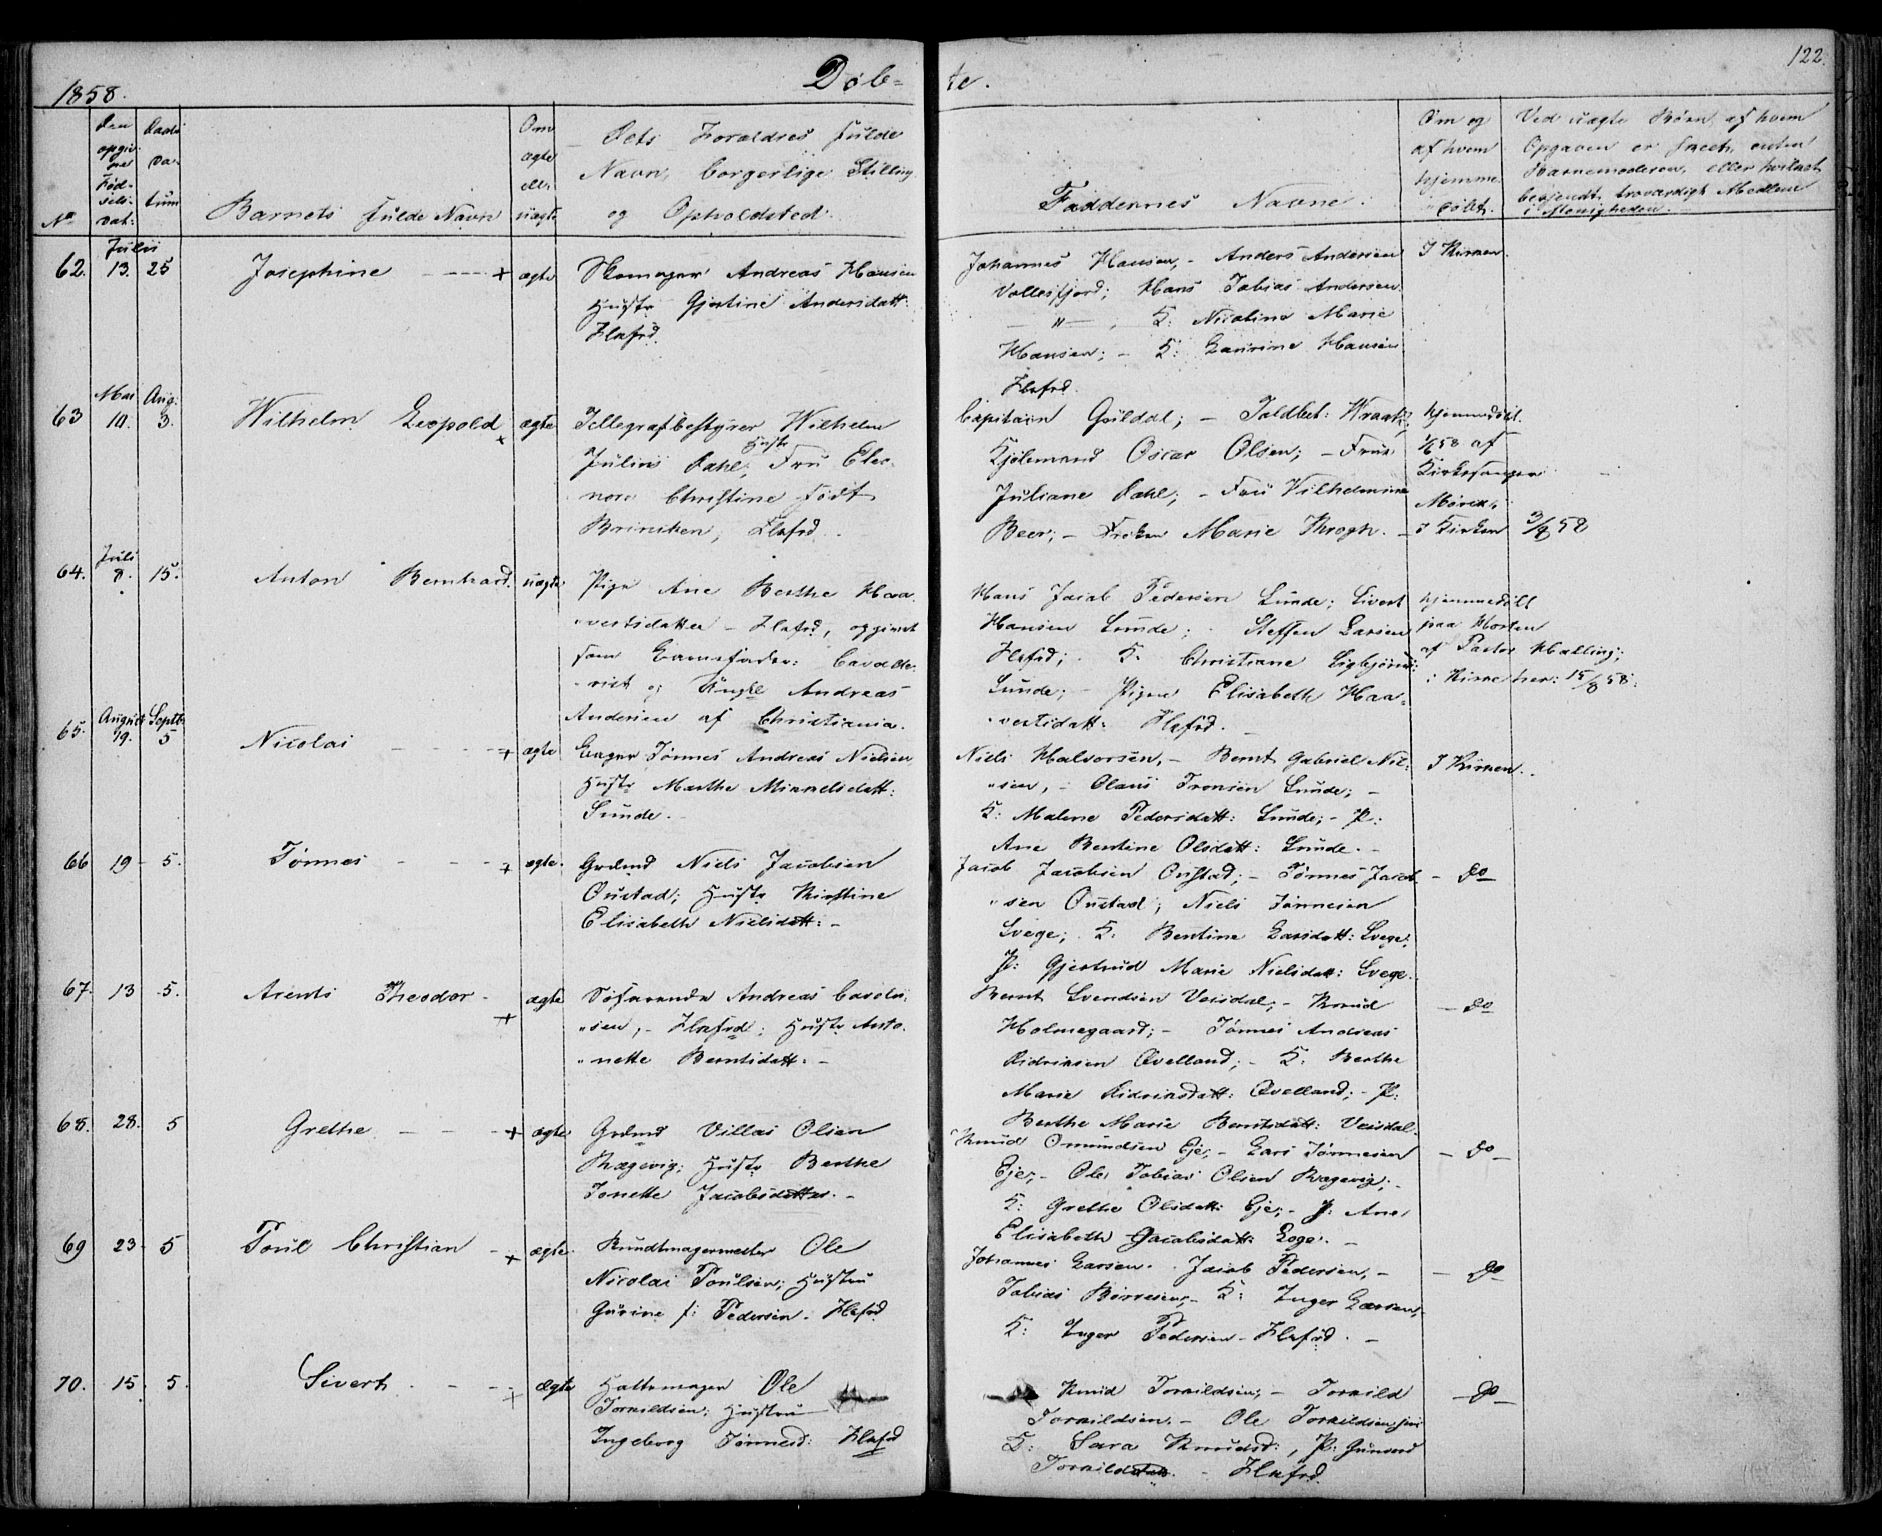 1858.
Døb-
te.
122.
Nº
Den opgivne Fødselsdat:
Daabsdatum
Barnets fulde Navn
Om ægte eller uægte
Dets Forældres fulde
Navn, borgerlige Stilling
og Opholdsted.
Faddernes Navne.
Om og
af hvem
hjemmedøbt.
Ved uægte Børn, af hvem
Opgaven er skeet, enten
Barnemoderen, eller hvilket
bekjendt, troværdigt Medlem
i Menigheden.
62. Julii 13. 25 Josephine - - - + ægte
Skomager Andreas Hansen
Hustr Gjertine Andersdatt:
Flafrd.
Johannes Hansen, - Anders Andersen
Vollesfjord; Hans Tobias Andersen
- " - , K: Nicoline Marie
Hansen; - K: Laurine Hansen
Flafrd.
I Kirken.
63 Mai 10. Aug: 3. Wilhelm Leopold + ægte
Tellegrafbestyrer Wilhelm
Julius Dahl, Hustr Fru Eleo-
nore Christine født
Brinchen, Flafrd.
Capitain Guldal; - Toldbet: Wraatz,
Kjøbmand Oscar Olsen; - Frue
Juliane Dahl; - Fru Vilhelmine
Beer; - Frøken Marie Krogh. -
hjemmedøbt
58 af
Kirkesanger
Mørch,
I Kirken 3/8 58
64. Juli 8. 15. Anton Bernhard. uægte
Pige Ane Berthe Haa-
vorsdatter - Flafrd, opgivet
som Barnefader: Cavalle-
rist og Ungk Andreas
Andersen af Christiania.
Hans Jacob Pedersen Lunde; Sivert
Hansen Lunde; Steffen Larsen
Flafrd; K: Christiane Sigbjørns:
Lunde; - Pigen Elisabeth Haa-
vorsdatt: Flafrd.
hjemmedøbt
paa
af Pastor Halling;
i Kirke her: 15/8 58.
65. August 19. Septb. 5 Nicolai - - - + ægte
Bager Tønnes Andreas Nielsen
Hustr Marthe Mikkelsdatt:
Lunde.
Niels Halvorsen, - Bernt Gabriel Niel-
sen, - Olaus Tronsen Lunde; -
K: Malene Pedersdatt: Lunde; - P:
Ane Bentine Olsdatt: Lunde. -
I Kirken.
66 19 - 5. Tønnes - - - + ægte.
Grdmd Niels Jacobsen
Oustad; Hustr Kirstine
Elisabeth Nielsdatt: -
Jacob Jacobsen Oustad; - Tønnes Jacob-
sen Oustad; Niels Tønnesen
Svege; K: Bentine Larsdatt: Svege;
P: Gjertrud Marie Nielsdatt: Svege.
- do
67. 13 5. Arents Theodor - + ægte
Søfarende Andreas Carols-
sen, - Flafrd; Hustr Anto-
nette Berntsdatt: -
Bernt Svendsen Veisdal; - Knud
Holmegaard; - Tønnes Andreas
Didriksen Øvelland; - K: Berthe
Marie Didriksdatt: Øvelland; - P:
Berthe Marie Berntsdatt: Veisdal.
- do
68. 28. 5 Grethe - - - + ægte
Grdmd Villas Olsen
Rægevig; Hustr Berthe
Tonette Jacobsdatter. -
Knud Omundsen Eje; - Lars Tønnesen
Eje; - Ole Tobias Olsen Rægevig; -
K: Grethe Olsdatt: Eje; - P: Ane
Elisabeth Jacobsdatt: Loge. -
- do -
69 23 - 5 Poul Christian - + ægte.
Bundtmagermester Ole
Nicolai Poulsen; Hustru
Gurine f: Pedersen. Flafrd
Johannes Larsen. Jacob Pedersen, -
Tobias Børresen; - K: Inger Larsen,
K: Inger Pedersen - Flafrd. -
- do -
70. 15. 5. Sivert. - - - + ægte
Hattemager Ole
Torkildsen; Hustru
Ingeborg Tønnesd: Flafrd
Knud Torkildsen; - Torkild
Torkildsen. - Ole Torkildsen jun
K: Sara Knudsd:, P: Gunvord
Torkildsdatt. - Flafrd.
- do -